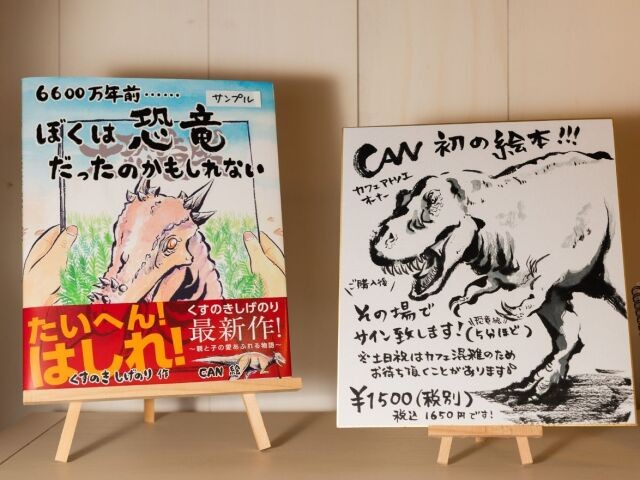 6600万年前……
サンプル
ぼくは恐竜
だったのかもしれない
たいへん!
はしれ!
くすのきしげのり
最新作!
～親と子の愛あふれる物語～
くすのき しげのり 作
CAN 絵
CAN 初の絵本!!!
カフェアトリエ
オーナー
ご購入後
その場で
サイン致します!(5分ほど)
※土日祝はカフェ混雑のため
お待ち頂くことがあります
¥1500(税別)
税込1650円です!